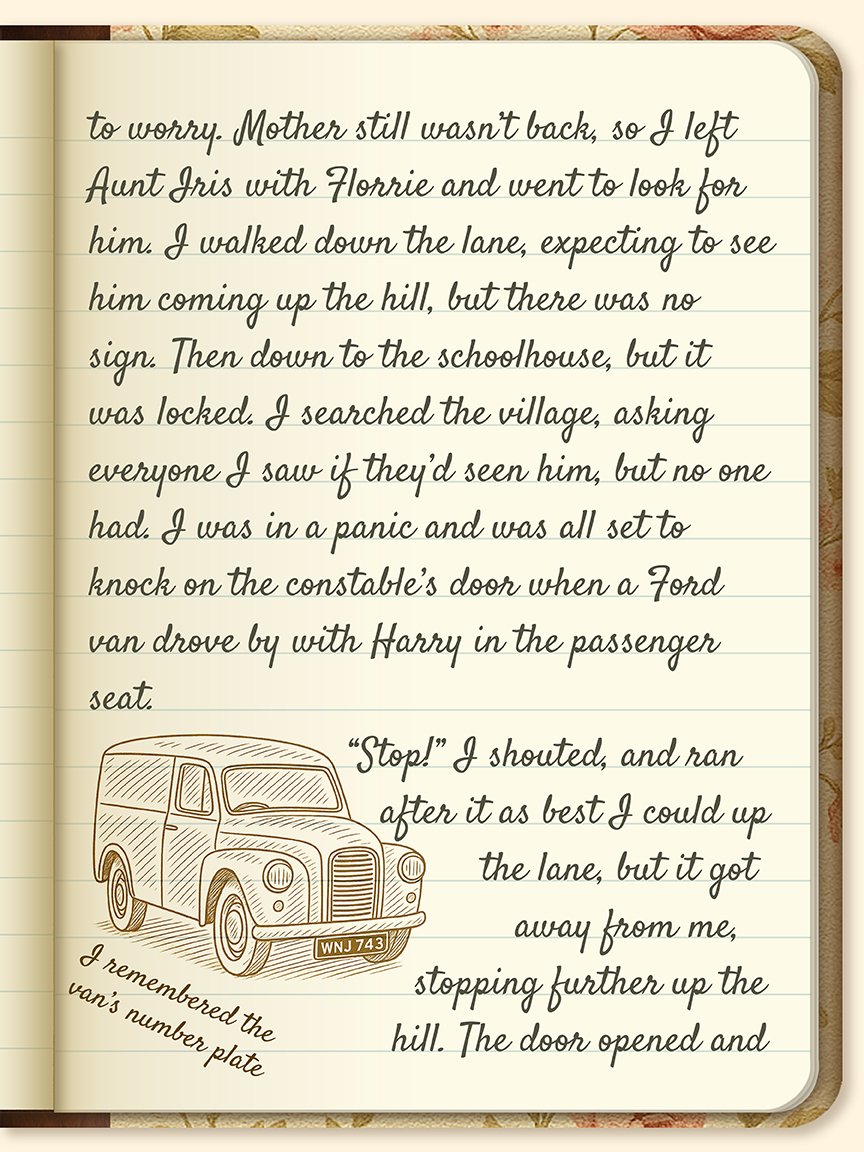 to worry. Mother still wasn't back, so I left
Aunt Iris with Florrie and went to look for
him. I walked down the lane, expecting to see
him coming up the hill, but there was no
sign. Then down to the schoolhouse, but it
was locked. I searched the village, asking
everyone I saw if they'd seen him, but no one
had. I was in a panic and was all set to
knock on the constable's door when a Ford
van drove by with Harry in the passenger
seat.
“Stop!” I shouted, and ran
after it as best I could up
the lane, but it got
away from me,
stopping further up the
hill. The door opened and
WNJ 743
I remembered the
van's number plate